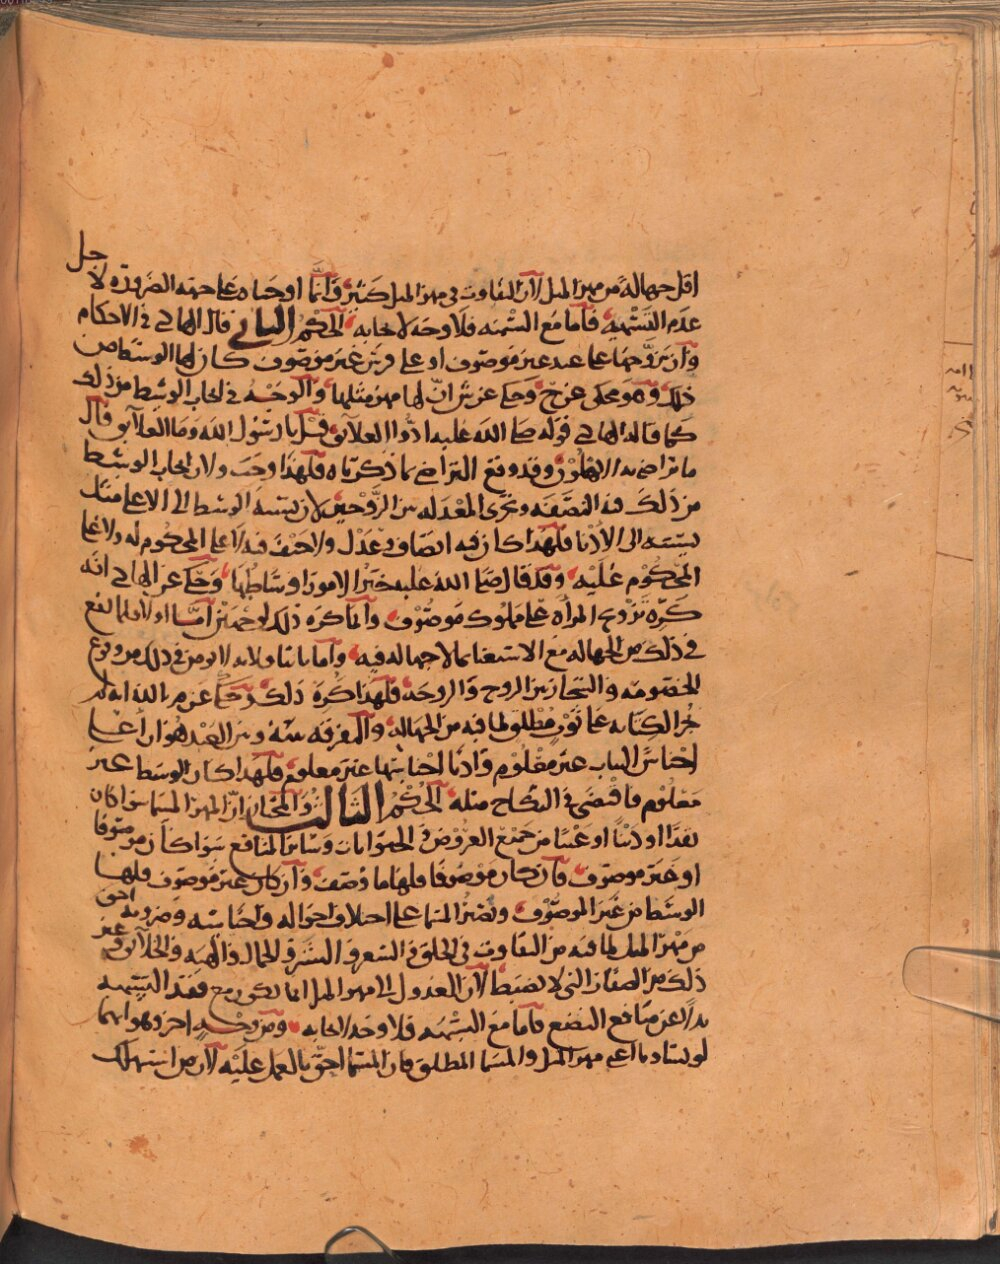 اقل جهالة من مهر المثل لأن التفاوت في مهر المثل كثير وانما اوجبناه على جهة الضرورة لاجل
عدم التسمية فأما مع التسمية فلا وجه لايجابه الحكم الثاني قال الهادي في الاحكام
وان تزوجها على عبد غير موصوف او على فرس غير موصوف كان لها الوسط من
ذلك وهو محكي عن ح وحكي عن ش ان لها مهر مثلها والوجه في ايجاب الوسط من ذلك
كما قاله الهادي قوله صلى الله عليه ادوا العلائق قيل يا رسول الله وما العلائق قال
ما تراضى به الاهلون وقد وقع التراضي بما ذكرناه فلهذا وجب ولان ايجاب الوسط
من ذلك فيه النصفة وتحرى المعدلة بين الزوجين لان نسبة الوسط الى الاعلى مثل
نسبته الى الأدنا فلهذا كان فيه انصاف وعدل ولا حيف فيه لا على المحكوم له ولا على
المحكوم عليه وقد قال صلى الله عليه خير الامور اوساطها وحكي عن الهادي انه
كره تزويج المرأة على مملوك موصوف وانما كره ذلك لوجهين اما اولا فلما يقع
في ذلك من الجهالة مع الاستغنا بما لا جهالة فيه واما ثانيا فلانه لا يؤمن في ذلك من وقوع
الخصومة والتشاجر بين الزوج والزوجة فلهذا كره ذلك وحكي عن م بالله انه لم
يجز الكتابة على ثوب مطلق لما فيه من الجهالة والتفرقة بينه وبين العبد هو ان اعلى
اجناس الثياب غير معلوم وأدنا اجناسها غير معلوم فلهذا كان الوسط غير
معلوم فاقتضى في النكاح مثله الحكم الثالث والمختار ان المهر المسما سوا كان
نقدا او دينا او عينا من جميع العروض في الحيوانات وسائر المنافع سوا كان موصوفا
او غير موصوف فان كان موصوفا فلها ما وصف وان كان غير موصوف فلها
الوسط من غير الموصوف ونصير المسما على اختلاف احواله واجناسه وضروبه احق
من مهر المثل لما فيه من التفاوت في الخلق في الشعر والبشرة والجمال والهيئة والخلائق وغير
ذلك من الصفات التي لا تضبط لأن العدول الى مهر المثل انما يكون مع فقد التسمية
بدلا عن منافع البضع فاما مع التسمية فلا وجه لايجابه ومن وجه اخر وهو انهما
لو تشاديا على مهر المثل والمسما المطلق كان المسما احق بالعمل عليه لأن من استهلك